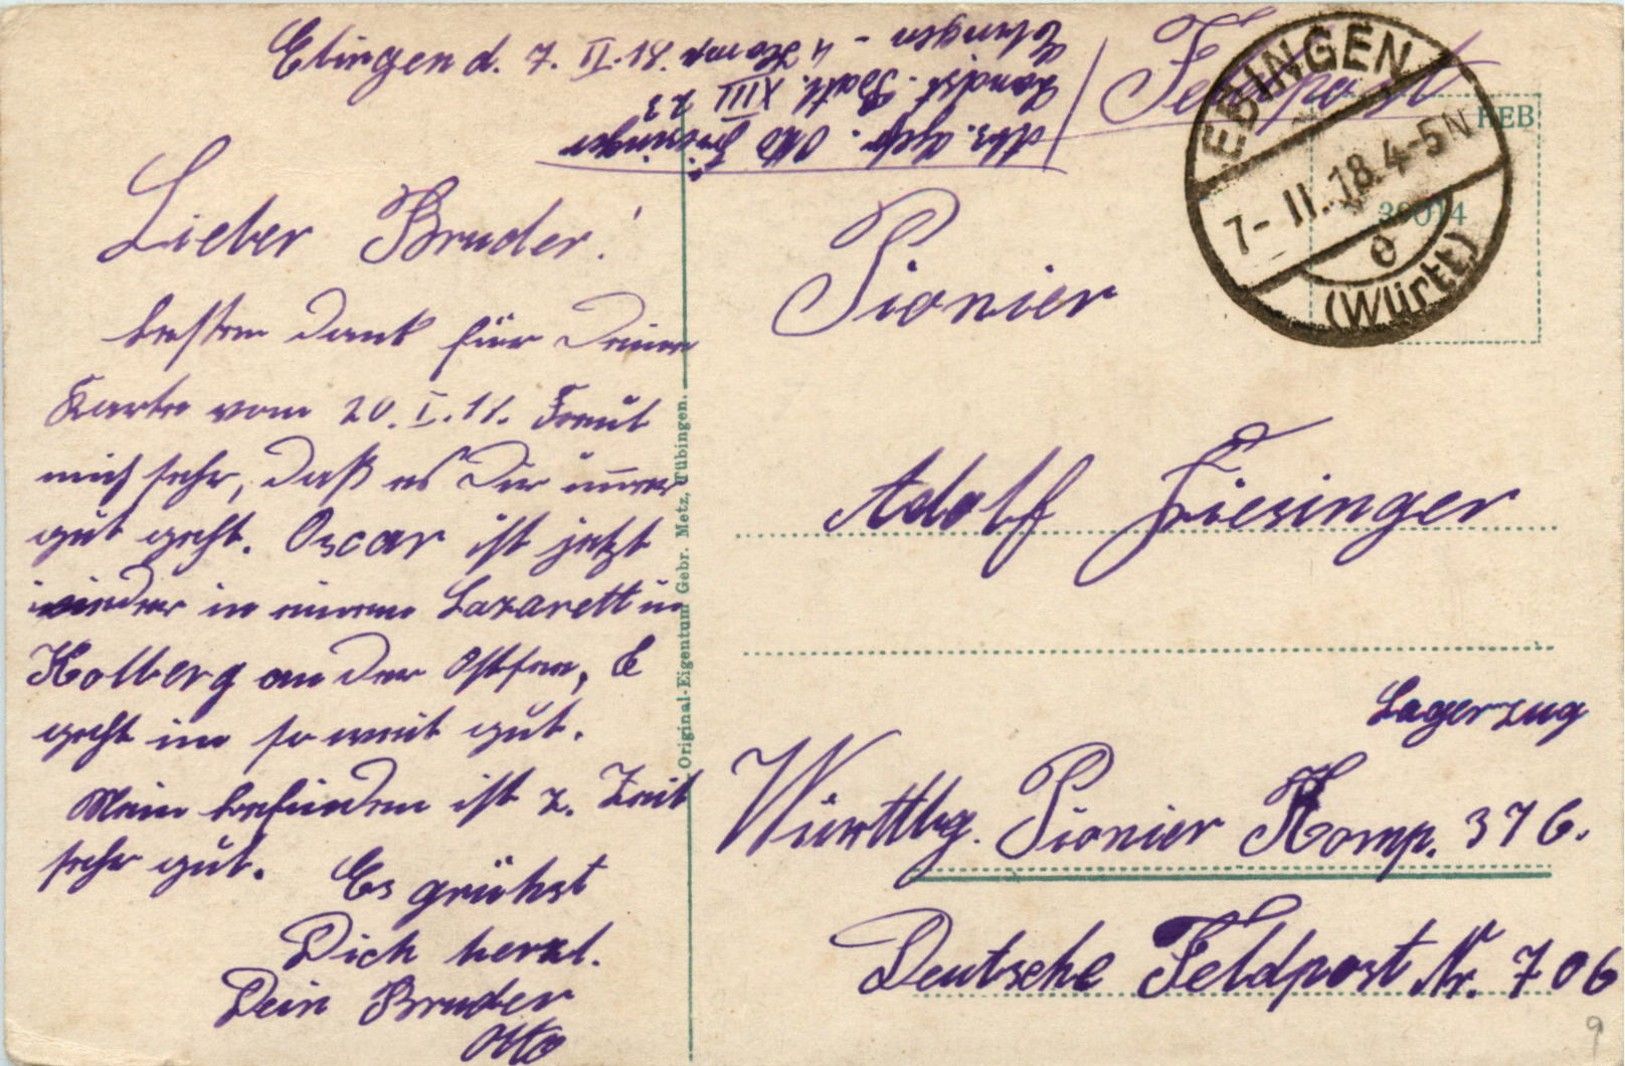 Ebingen d. 7. II. 18.
Abs. Gefr. Otto Fiesinger
Landst. Batl. XIII
23
4 Komp. -
Ebingen
Lieber Bruder!
besten Dank für Deine
Karte vom 20. I. 18. Freut
mich sehr, daß es Dir immer
gut geht. Oscar ist jetzt
wieder in einem Lazarett in
Kolberg an der Ostsee, &
geht im so weit gut.
Mein befinden ist z. Zeit
sehr gut.
Es grühst
Dich herzl.
Dein Bruder
Otto
Original-Eigentum Gebr. Metz, Tübingen.
Feldpost
EBINGEN
7-II.18.4-5N
e
(Württ)
REB
36014
Pionier
Adolf Fiesinger
Lagerzug
Württbg. Pionier Komp. 376.
Deutsche Feldpost Nr. 706
9